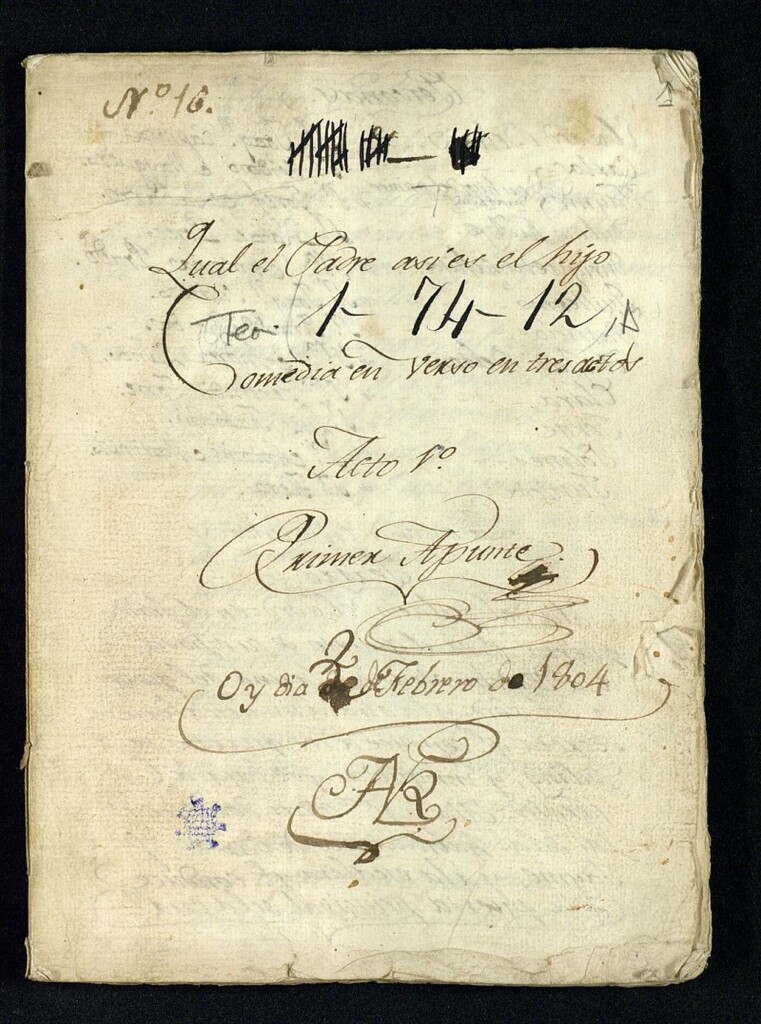 1
Nº 16.
Qual el Padre asi es el hijo
Tea. 1-74-12, A
Comedia en verso en tres actos
Acto 1º
Primer Apunte.
Oy dia 2 de Febrero de 1804